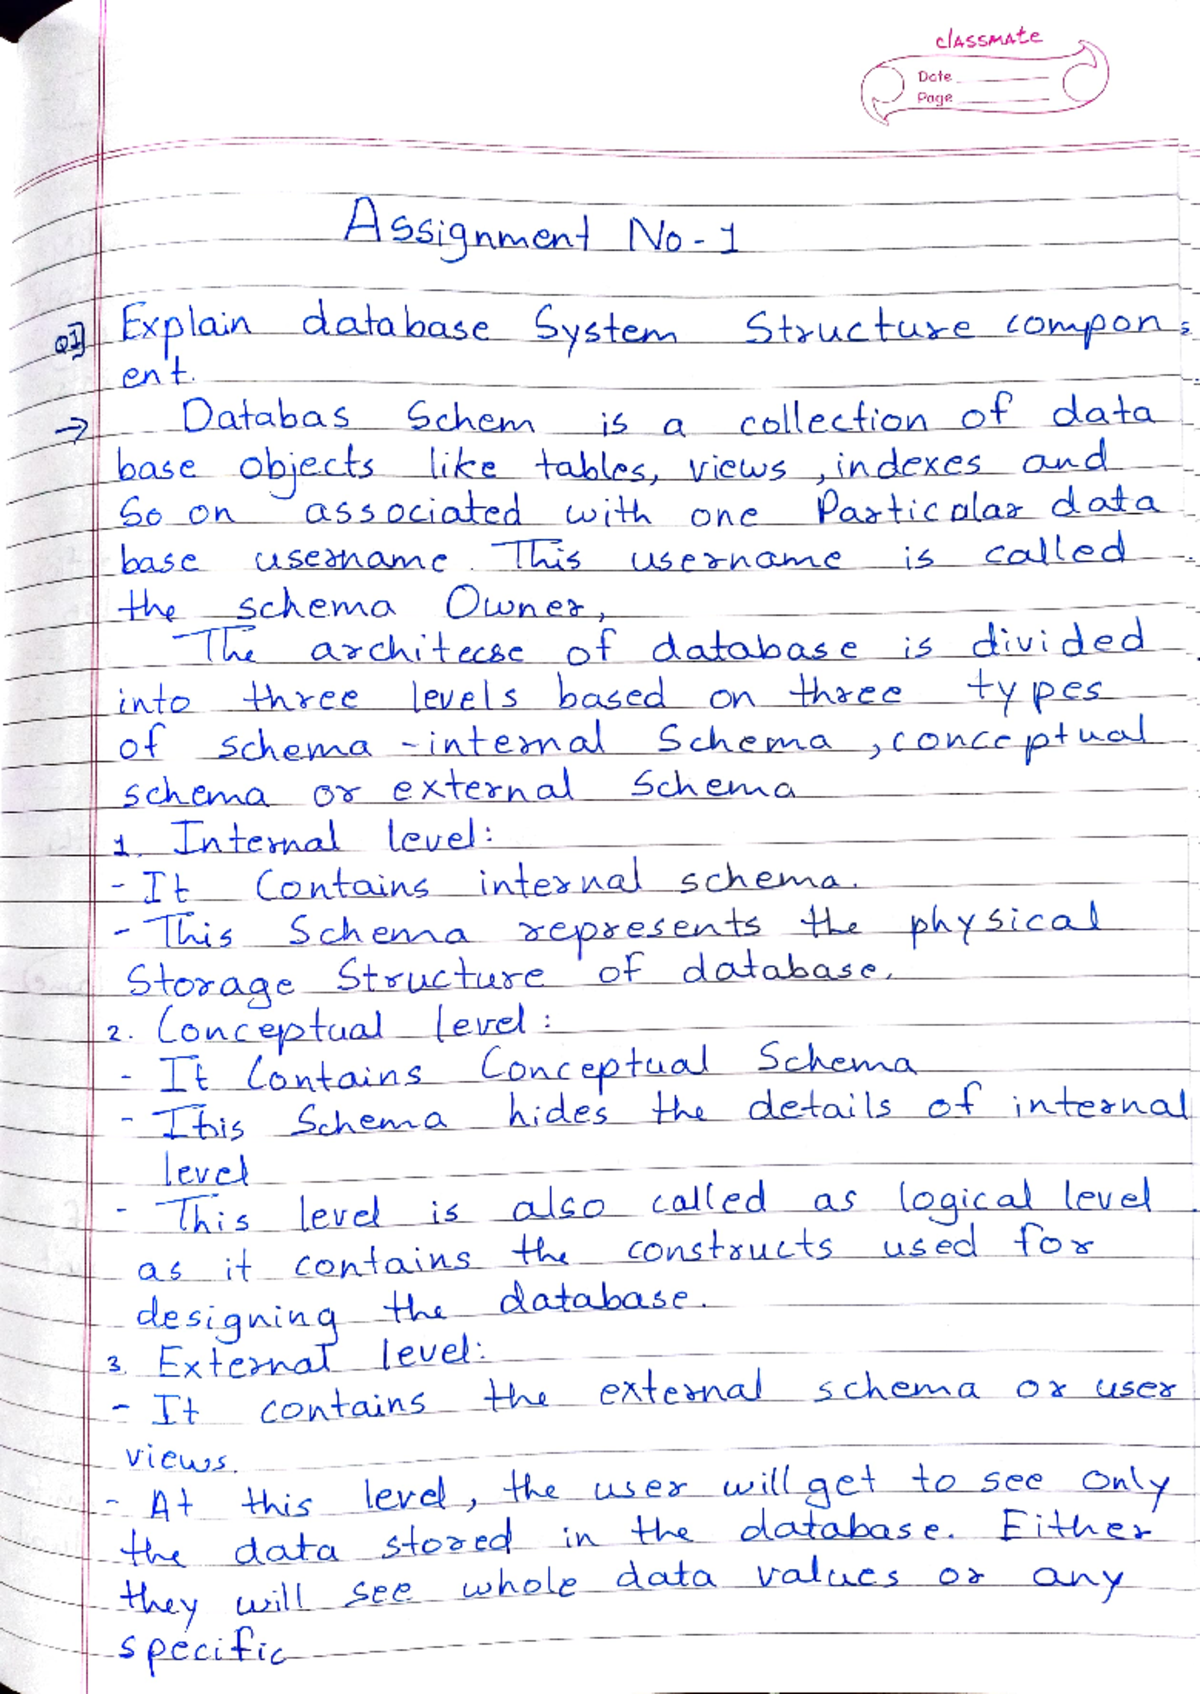 classmate
Date
Page
Assignment No-1
Q1] Explain database System Structure compon
ent.
→ Databas Schem is a collection of data
base objects like tables, views, indexes and
So on associated with one Particular data
base username. This username is called
the schema Owner,
The architecse of database is divided
into three levels based on three types
of schema - internal Schema, conceptual
schema or external Schema
1. Internal level:
- It Contains internal schema.
- This Schema represents the physical
Storage Structure of database.
2. Conceptual level:
- It Contains Conceptual Schema
- This Schema hides the details of internal
level
- This level is also called as logical level
as it contains the constructs used for
designing the database.
3. External level:
- It contains the external schema or user
views.
- At this level, the user will get to see only
the data stored in the database. Either
they will see whole data values or any
specific